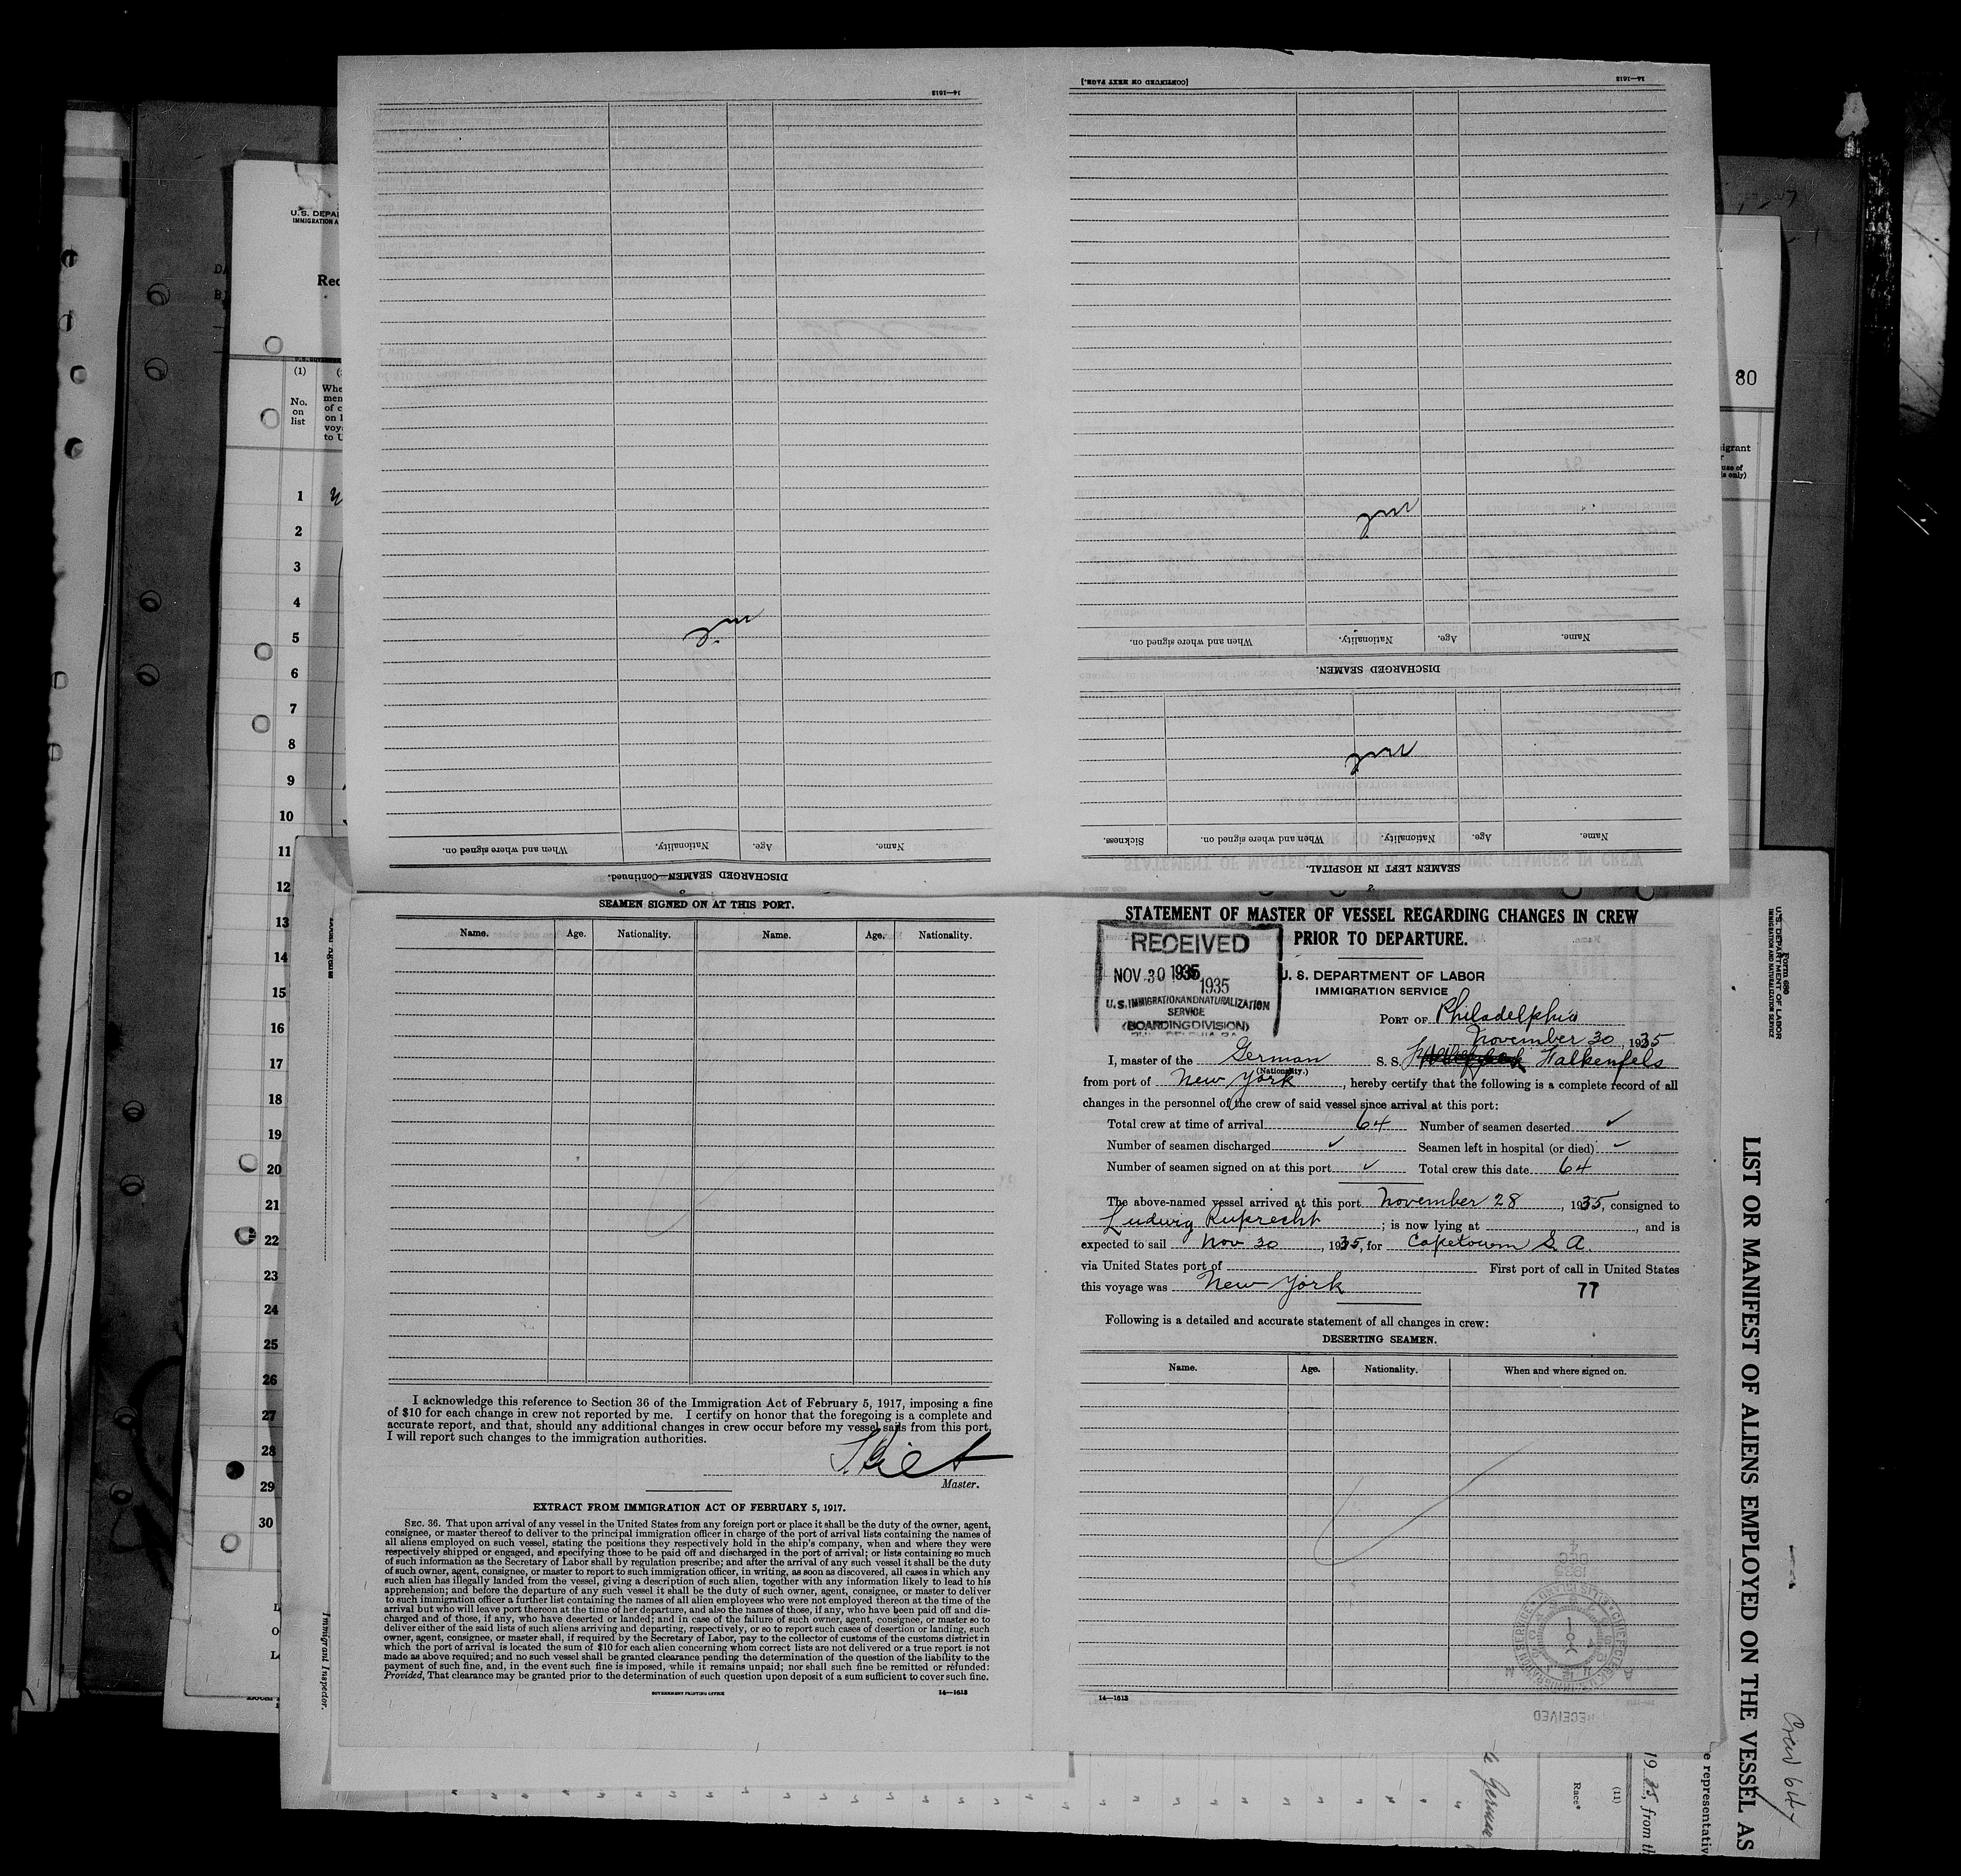 [CONTINUED ON NEXT PAGE.]
14—1613
14—1613
nil
nil
nil
Name.
Age.
Nationality.
When and where signed on.
DISCHARGED SEAMEN.
Name.
Age.
Nationality.
When and where signed on.
Sickness.
SEAMEN LEFT IN HOSPITAL.
2
Name.
Age.
Nationality.
When and where signed on.
DISCHARGED SEAMEN—Continued.
3
U. S. DEPA
IMMIGRATION A
Rec
(1)
No.
on
list
Whe
men
of c
on l
voya
to U
1
2
3
4
5
6
7
8
9
10
11
12
13
14
15
16
17
18
19
20
21
22
23
24
25
26
27
28
29
30
80
igrant
use of
s only)
SEAMEN SIGNED ON AT THIS PORT.
Name. Age. Nationality. Name. Age. Nationality.
I acknowledge this reference to Section 36 of the Immigration Act of February 5, 1917, imposing a fine
of $10 for each change in crew not reported by me. I certify on honor that the foregoing is a complete and
accurate report, and that, should any additional changes in crew occur before my vessel sails from this port,
I will report such changes to the immigration authorities.
Master.
EXTRACT FROM IMMIGRATION ACT OF FEBRUARY 5, 1917.
SEC. 36. That upon arrival of any vessel in the United States from any foreign port or place it shall be the duty of the owner, agent,
consignee, or master thereof to deliver to the principal immigration officer in charge of the port of arrival lists containing the names of
all aliens employed on such vessel, stating the positions they respectively hold in the ship's company, when and where they were
respectively shipped or engaged, and specifying those to be paid off and discharged in the port of arrival; or lists containing so much
of such information as the Secretary of Labor shall by regulation prescribe; and after the arrival of any such vessel it shall be the duty
of such owner, agent, consignee, or master to report to such immigration officer, in writing, as soon as discovered, all cases in which any
such alien has illegally landed from the vessel, giving a description of such alien, together with any information likely to lead to his
apprehension; and before the departure of any such vessel it shall be the duty of such owner, agent, consignee, or master to deliver
to such immigration officer a further list containing the names of all alien employees who were not employed thereon at the time of the
arrival but who will leave port thereon at the time of her departure, and also the names of those, if any, who have been paid off and dis-
charged and of those, if any, who have deserted or landed; and in case of the failure of such owner, agent, consignee, or master so to
deliver either of the said lists of such aliens arriving and departing, respectively, or so to report such cases of desertion or landing, such
owner, agent, consignee, or master shall, if required by the Secretary of Labor, pay to the collector of customs of the customs district in
which the port of arrival is located the sum of $10 for each alien concerning whom correct lists are not delivered or a true report is not
made as above required; and no such vessel shall be granted clearance pending the determination of the question of the liability to the
payment of such fine, and, in the event such fine is imposed, while it remains unpaid; nor shall such fine be remitted or refunded:
Provided, That clearance may be granted prior to the determination of such question upon deposit of a sum sufficient to cover such fine.
GOVERNMENT PRINTING OFFICE
14—1613
STATEMENT OF MASTER OF VESSEL REGARDING CHANGES IN CREW
PRIOR TO DEPARTURE.
RECEIVED
NOV 30 1935
1935
U.S. IMMIGRATION AND NATURALIZATION
SERVICE
(BOARDING DIVISION)
U. S. DEPARTMENT OF LABOR
IMMIGRATION SERVICE
PORT OF Philadelphia
November 30, 1935
I, master of the German S. S. Falkenfels
(Nationality.)
from port of New York, hereby certify that the following is a complete record of all
changes in the personnel of the crew of said vessel since arrival at this port:
Total crew at time of arrival 64 Number of seamen deserted ✓
Number of seamen discharged ✓ Seamen left in hospital (or died) ✓
Number of seamen signed on at this port ✓ Total crew this date 64
The above-named vessel arrived at this port November 28, 1935, consigned to
Ludwig Ruprecht; is now lying at , and is
expected to sail Nov 30, 1935, for Capetown S. A.
via United States port of First port of call in United States
this voyage was New York 77
Following is a detailed and accurate statement of all changes in crew:
DESERTING SEAMEN.
Name. Age. Nationality. When and where signed on.
14—1613
RECEIVED
Form 680
U. S. DEPARTMENT OF LABOR
IMMIGRATION AND NATURALIZATION SERVICE
LIST OR MANIFEST OF ALIENS EMPLOYED ON THE VESSEL AS
Crew 64
e representativ
1935, from th
(11)
Race*
German
Immigrant Inspector.